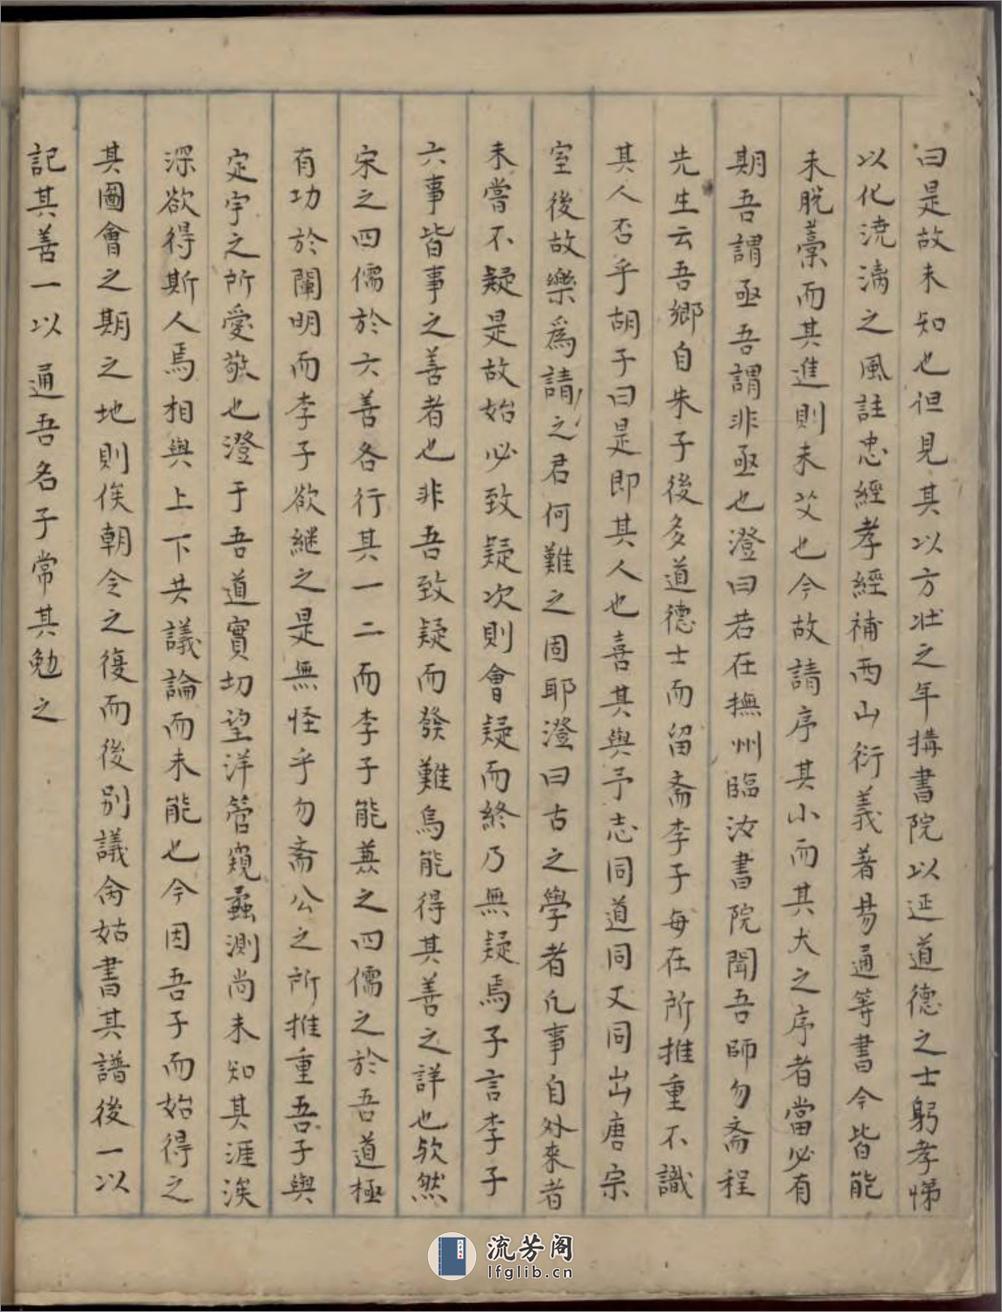 曰是故未知也但見其以方壯之年搆書院以延道德之士躬孝悌
以化澆漓之風註忠經孝經補西山衍義著易通等書今皆能
未脫藁而其進則未艾也今故請序其小而其大之序者當必有
期吾謂亟吾謂非亟也澄曰若在撫州臨汝書院聞吾師勿斋程
先生云吾鄉自朱子後多道德士而留斋李子每在所推重不識
其人否乎胡子曰是即其人也喜其與予志同道同又同出唐宗
室後故樂爲請之君何難之固耶澄曰古之學者凡事自外來者
未嘗不疑是故始必致疑次則會疑而終乃無疑焉子言李子
六事皆事之善者也非吾致疑而發難烏能得其善之詳也欤然
宋之四儒於六善各行其一二而李子能兼之四儒之於吾道極
有功於闡明而李子欲継之是無怪乎勿斋公之所推重吾子與
定宇之所愛敬也澄于吾道實切望洋管窺蠡測尚未知其涯涘
深欲得斯人焉相與上下共議論而未能也今因吾子而始得之
其圖會之期之地則俟朝令之復而後別議侖姑書其譜後一以
記其善一以通吾名子常其勉之
流芳阁
lfglib.cn